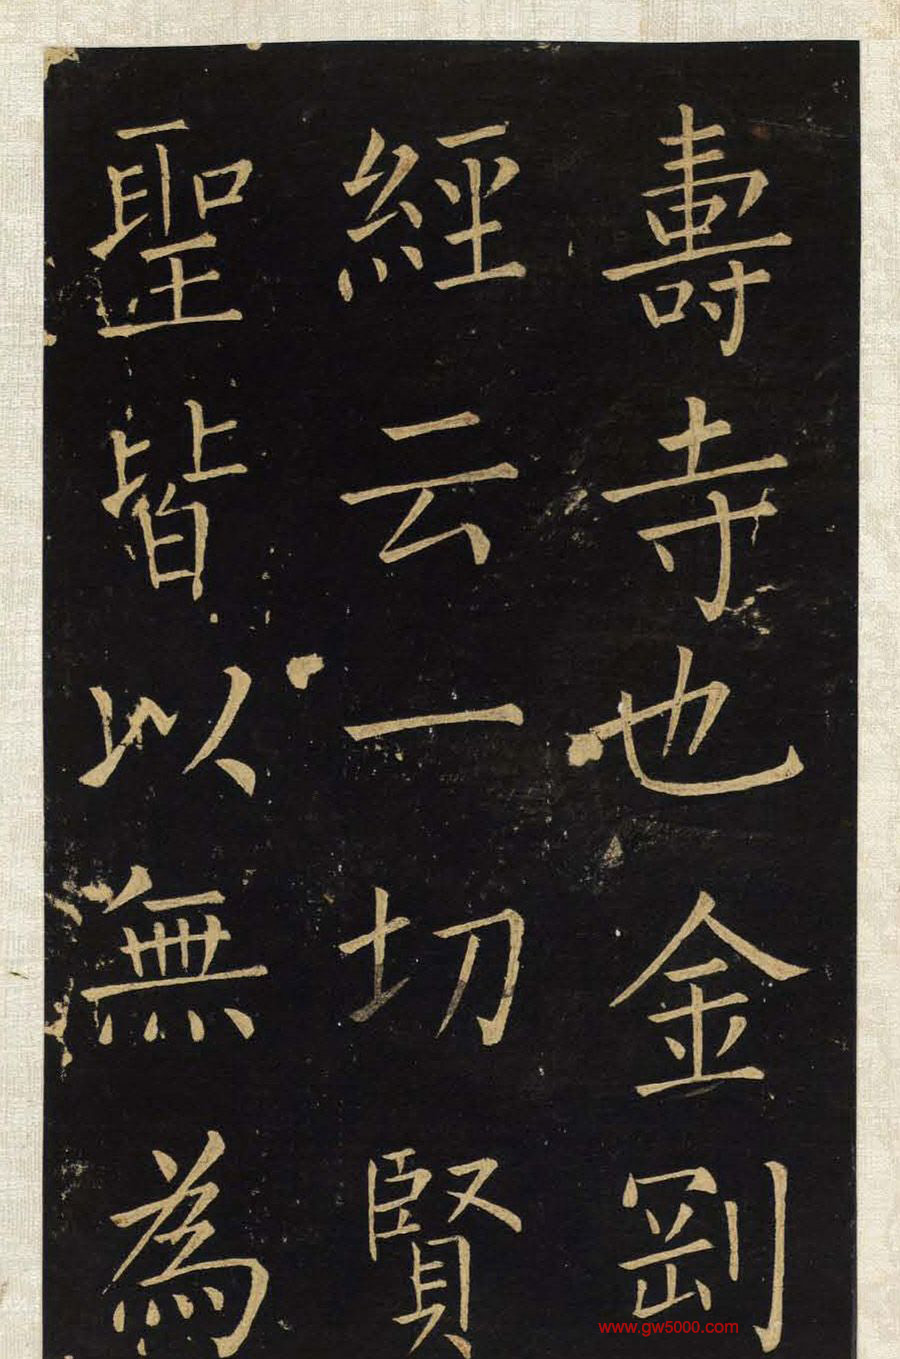 壽寺也金剛
經云一切賢
聖皆以無為
www.gw5000.com